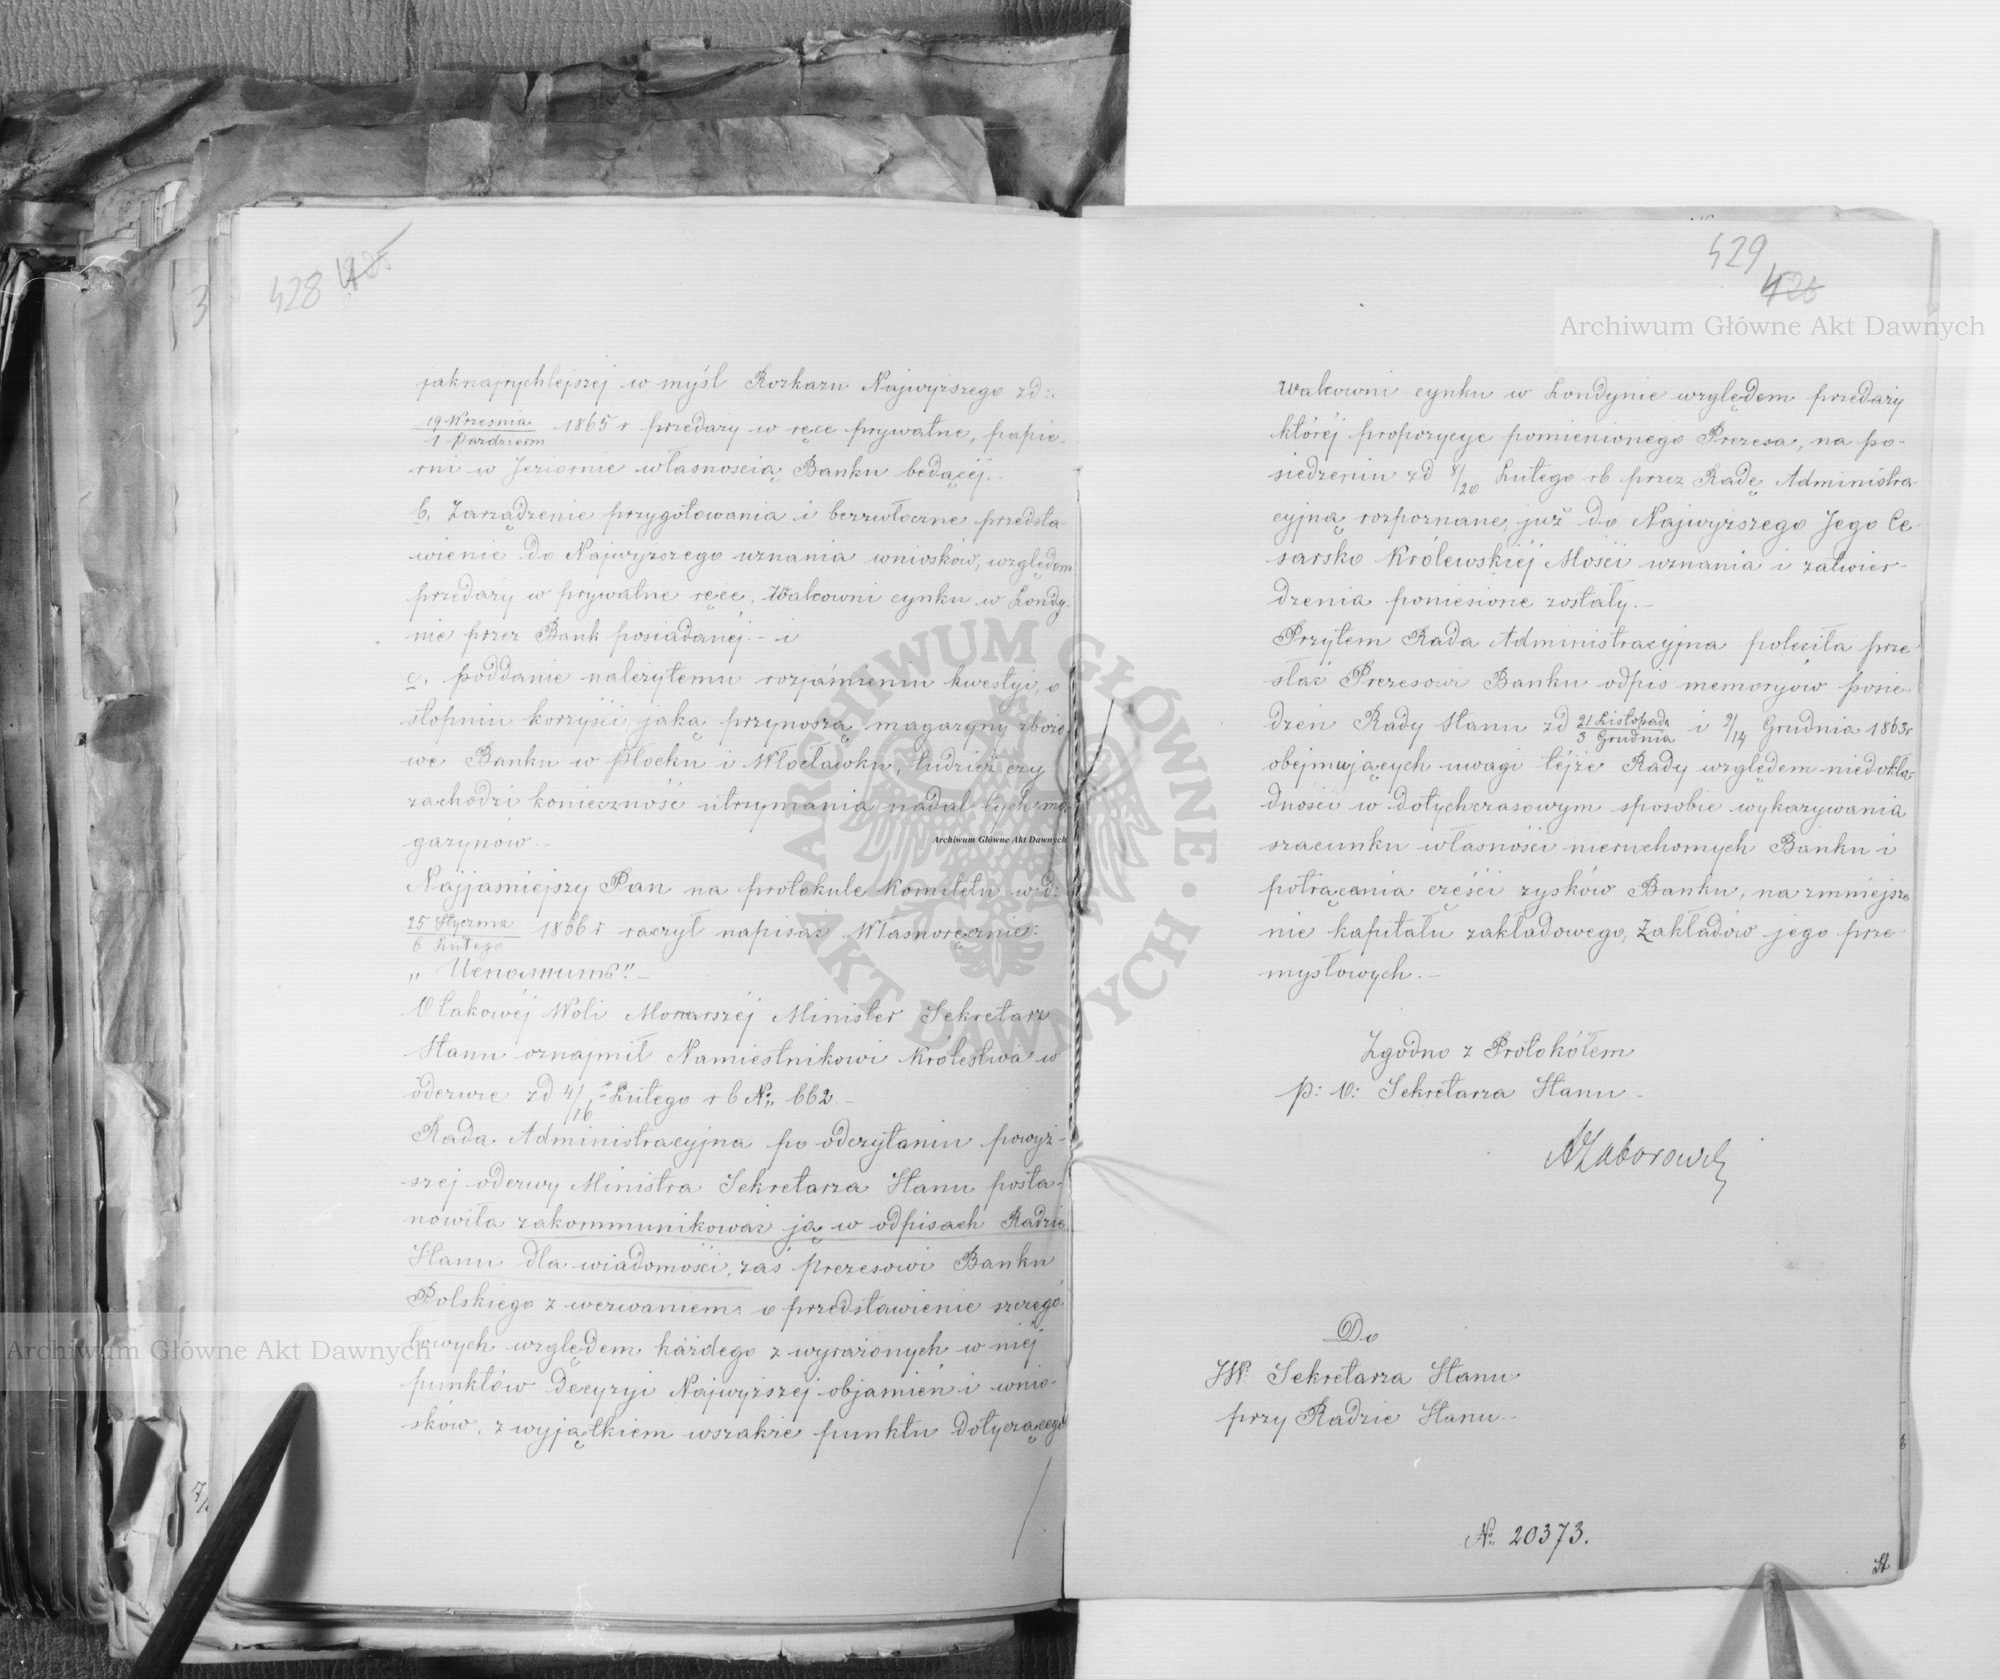 428 425
jaknajrychlejszej w myśl Rozkazu Najwyższego zd:
19 Września / 1 Październ 1865 r przedaży w ręce prywatne, papie-
rni w Jeziornie własnością Banku będącej.
b. Zarządzenie przygotowania i bezzwłoczne przedsta-
wienie do Najwyższego uznania wniosków, względem
przedaży w prywatne ręce, Walcowni cynku w Londy-
nie przez Bank posiadanej. - i
c. poddanie należytemu rozjaśnieniu kwestyi, o
stopniu korzyści jaką przynoszą magazyny zbożo-
we Banku w Płocku i Włocławku, tudzież czy
zachodzi konieczność utrzymania nadal tych ma-
gazynów.-
Najjaśniejszy Pan na protokule Komitetu w d:
25 Stycznia / 6 Lutego 1866 r raczył napisać Własnoręcznie:
„Исполнить".-
O takowéj Woli Monarszéj Minister Sekretarz
Stanu oznajmił Namiestnikowi Królestwa w
odezwie zd 4/16 Lutego r b No. 662.-
Rada Administracyjna po odczytaniu powyż-
szej odezwy Ministra Sekretarza Stanu posta-
nowiła zakommunikować ją w odpisach Radzie
Stanu dla wiadomości, zaś prezesowi Banku
Polskiego z wezwaniem o przedstawienie szczegó-
łowych względem każdego z wyrażonych w niéj
punktów Decyzyi Najwyższej objaśnień i wnio-
sków, z wyjątkiem wszakże punktu dotyczącego
429
426
Walcowni cynku w Londynie względem przedaży
któréj propozycye pomienionego Prezesa, na po-
siedzeniu zd 8/20 Lutego rb przez Radę Administra-
cyjną rozpoznane, już do Najwyższego Jego Ce-
sarsko Królewskiéj Mości uznania i zatwier-
dzenia poniesione zostały.-
Przytem Rada Administracyjna poleciła prze-
słać Prezesowi Banku odpis memoryów posie-
dzeń Rady Stanu zd 21 Listopada / 3 Grudnia i 2/14 Grudnia 1863 r
obejmujących uwagi téjże Rady względem niedokła-
dności w dotychczasowym sposobie wykazywania
szacunku własności nieruchomych Banku i
potrącania części zysków Banku, na zmniejsze-
nie kapitału zakładowego, Zakładów jego prze-
mysłowych.-
Zgodno z Protokółem
p: o: Sekretarza Stanu
AZaborowski
Do
JW: Sekretarza Stanu
przy Radzie Stanu.-
No. 20373.
St
Archiwum Główne Akt Dawnych
Archiwum Główne Akt Dawnych
Archiwum Główne Akt Dawnych
ARCHIWUM GŁÓWNE AKT DAWNYCH